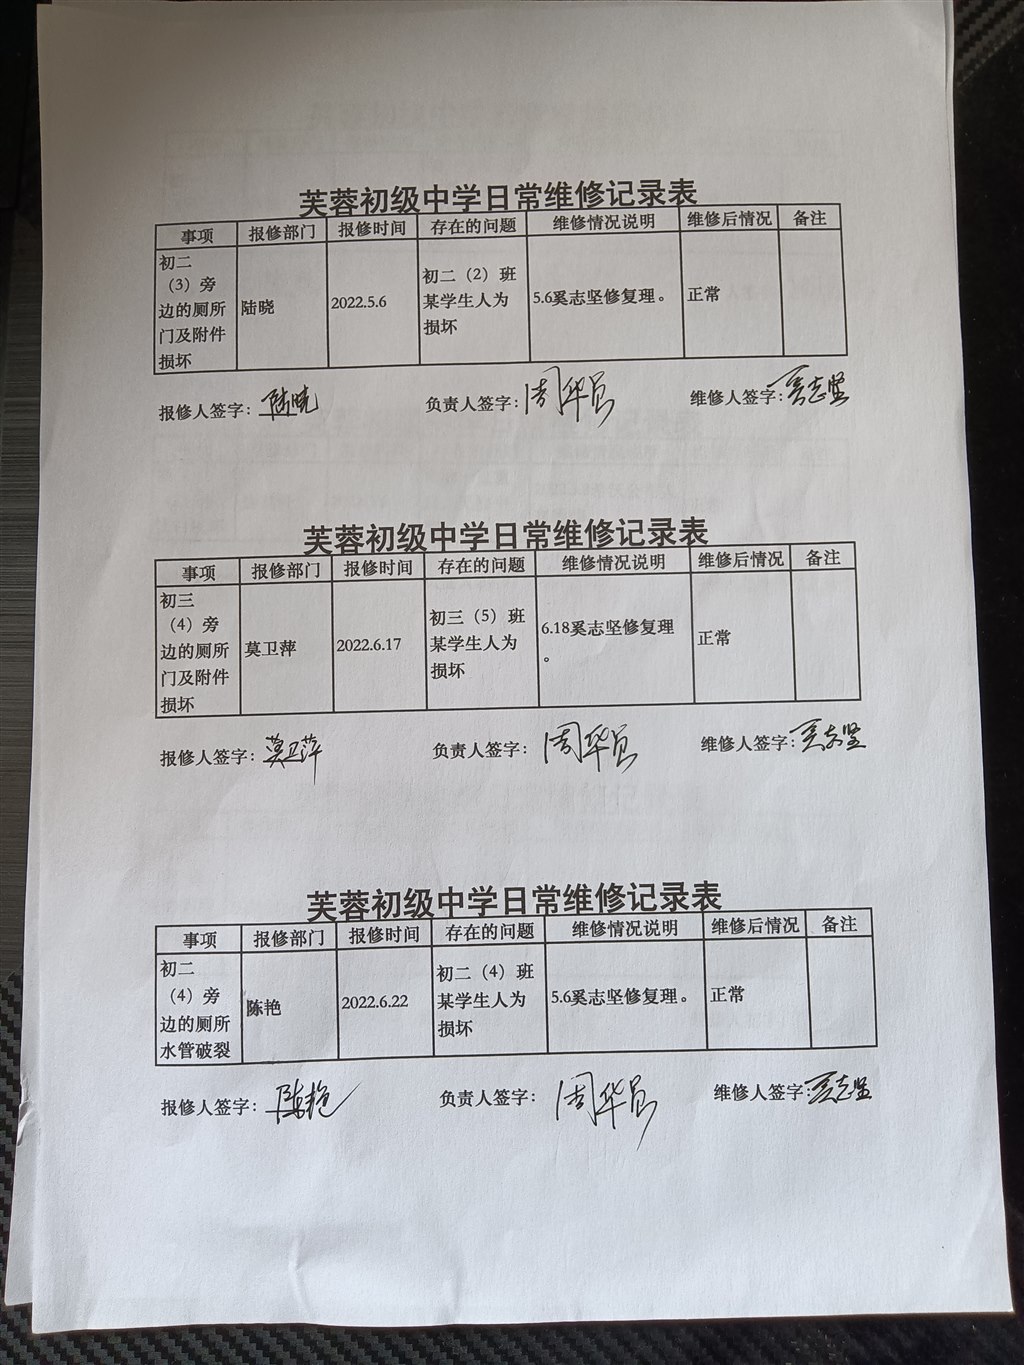 芙蓉初级中学日常维修记录表
事项 报修部门 报修时间 存在的问题 维修情况说明 维修后情况 备注
初二
（3）旁
边的厕所
门及附件
损坏
陆晓
2022.5.6
初二（2）班
某学生人为
损坏
5.6奚志坚修复理。
正常
报修人签字：陆晓 负责人签字：周华员 维修人签字：奚志坚
芙蓉初级中学日常维修记录表
事项 报修部门 报修时间 存在的问题 维修情况说明 维修后情况 备注
初三
（4）旁
边的厕所
门及附件
损坏
莫卫萍
2022.6.17
初三（5）班
某学生人为
损坏
6.18奚志坚修复理
。
正常
报修人签字：莫卫萍 负责人签字：周华员 维修人签字：奚志坚
芙蓉初级中学日常维修记录表
事项 报修部门 报修时间 存在的问题 维修情况说明 维修后情况 备注
初二
（4）旁
边的厕所
水管破裂
陈艳
2022.6.22
初二（4）班
某学生人为
损坏
5.6奚志坚修复理。
正常
报修人签字：陈艳 负责人签字：周华员 维修人签字：奚志坚